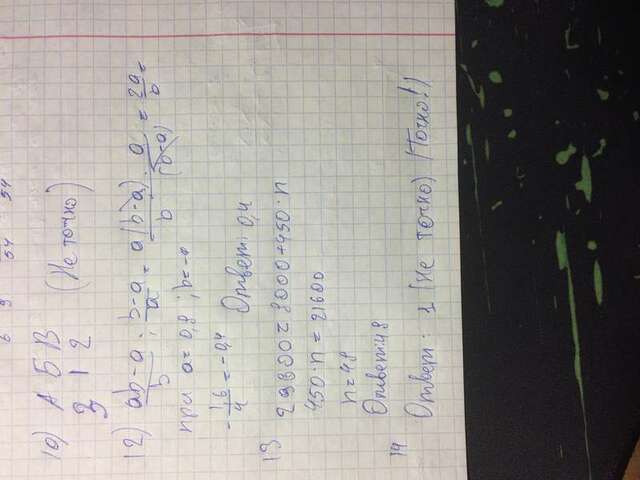 6 9 54 54
10) А Б В (Не точно)
3 1 2
12) ab-a/b : b-a/a = a(b-a)/b · a/(b-a) = 2a/b =
при a=0,8; b=-4
-1,6/4 = -0,4 Ответ: 0,4
13 29600=8000+450·n
450·n=21600
n=48
Ответ: 48
14 Ответ: 1 (Не точно) (Точно!)